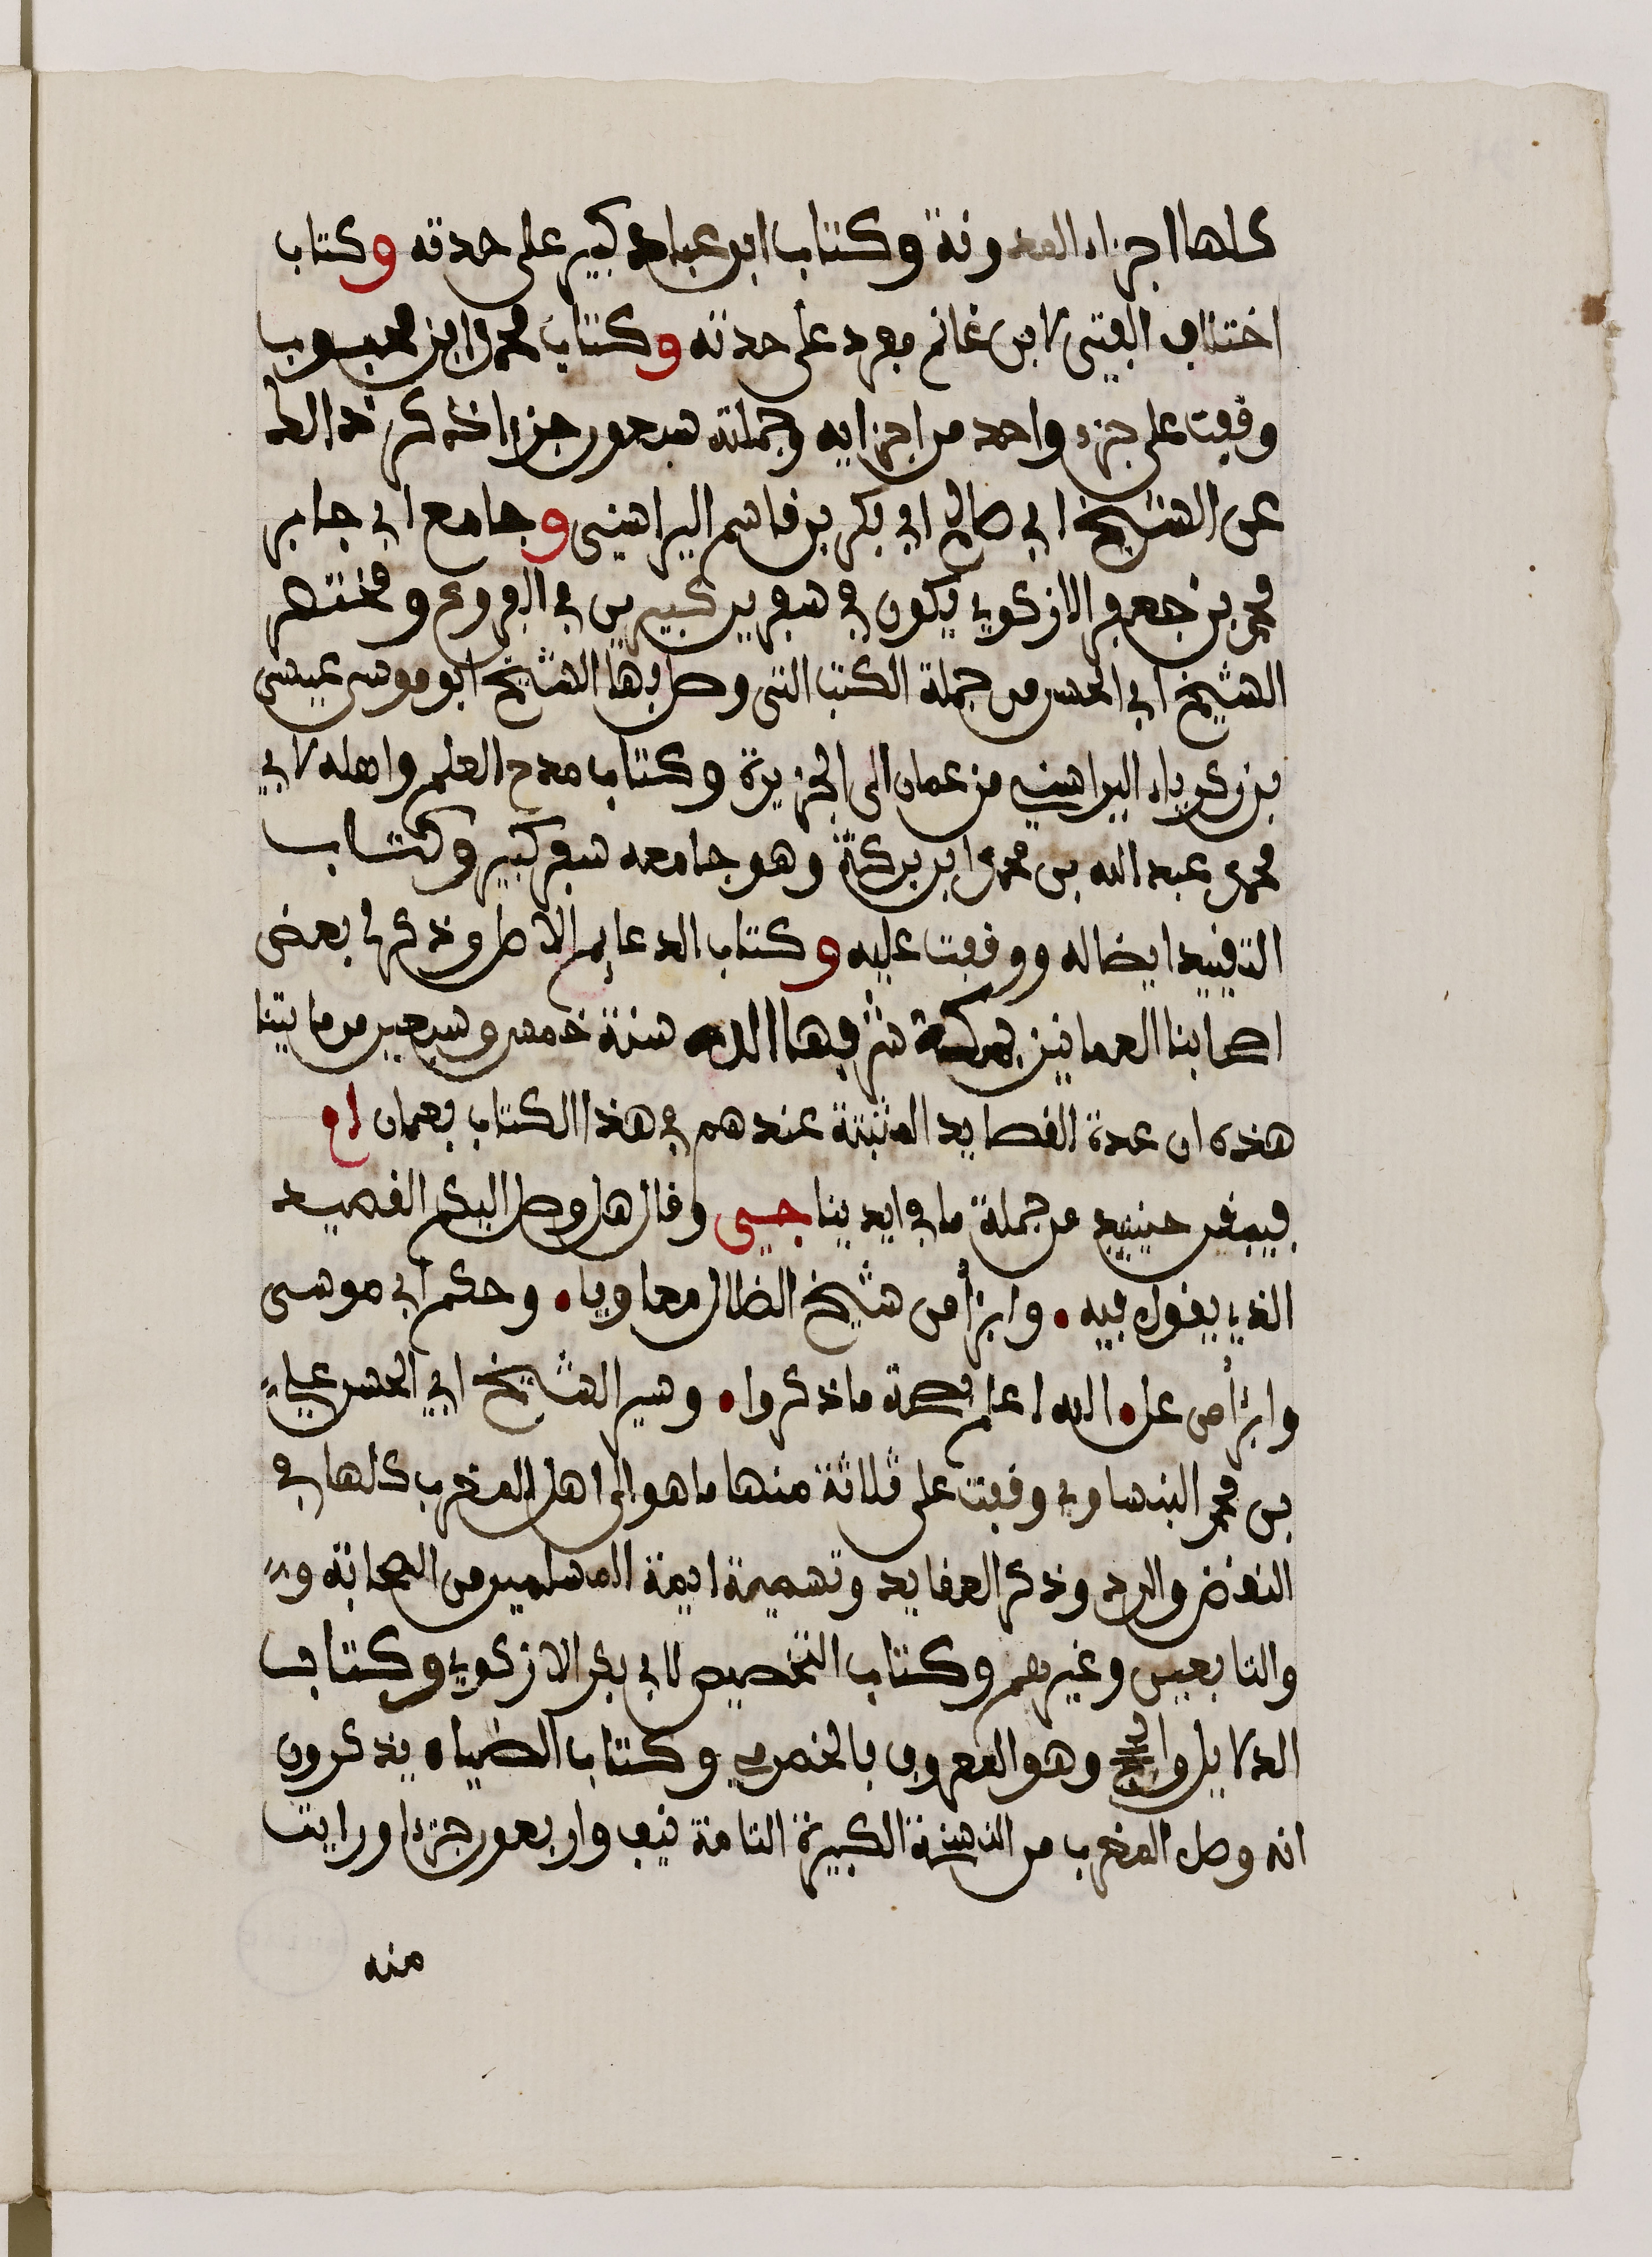 كلها اجزاء المدونة وكتاب ابن عباد كبير على حدته وكتاب
اختلاف الفتى لابن غانم مفرد على حدته وكتاب محمد ابن محبوب
وقفت على جزء واحد من اجزايه وجملته سبعون جزءا ذكر ذالك
عن الشيخ ابي صالح ابي بكر بن قاسم اليراسني وجامع ابي جابر
محمد بن جعفر الازكوي يكون في سفرين كبيرين في الفروع ومختصر
الشيخ ابي الحسن من جملة الكتب التي وصل بها الشيخ ابو موسى عيسى
بن زكرياء اليراسني من عمان الى الجزيرة وكتاب مدح العلم واهله لابي
محمد عبد الله بن محمد ابن بركة وهو جامعه سفر كبير وكتاب
التقييد ايضا له ووقفت عليه وكتاب الدعايم الاصل وذكر لي بعض
اصحابنا العمانيين بمكة شرفها الله سنة خمس وسبعين من مايتنا
هذه ان عدة القصايد المثبتة عندهم في هذا الكتاب بعمان
فيبقى حينيد عن جملة ما في ايدينا وقال هل وصل اليكم القصيد
الذي يقول فيه وابرأ من شيخ الظلال معاويا وحكم ابي موسى
وابرأ من عل الله اعلم بصحة ما ذكروا وسير الشيخ ابي الحسن علي
بن محمد البسياوي وقفت على ثلاثة منها ما هو الى اهل المغرب كلها في
النقض والرد وذكر العقايد وتسمية ايمة المسلمين من الصحابة و
والتابعين وغيرهم وكتاب التخصيص لابي بكر الازكوي وكتاب
الدلايل والحجج وهو المعروف بالحضرمي وكتاب الضياء يذكرون
انه وصل المغرب من النسخة الكبيرة التامة نيف واربعون جزءا ورايت
منه